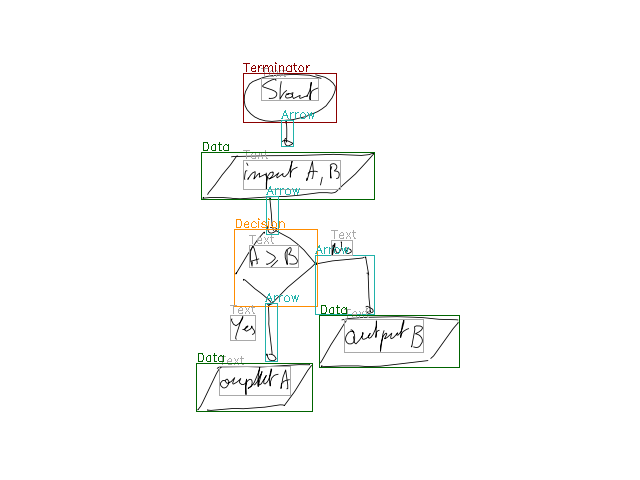 Terminator
Text
Start
Arrow
Data
Text
input A, B
Arrow
Decision
Text
A ⩾ B
Text
No
Arrow
Arrow
Text
Yes
Data
Text
output B
Data
Text
A